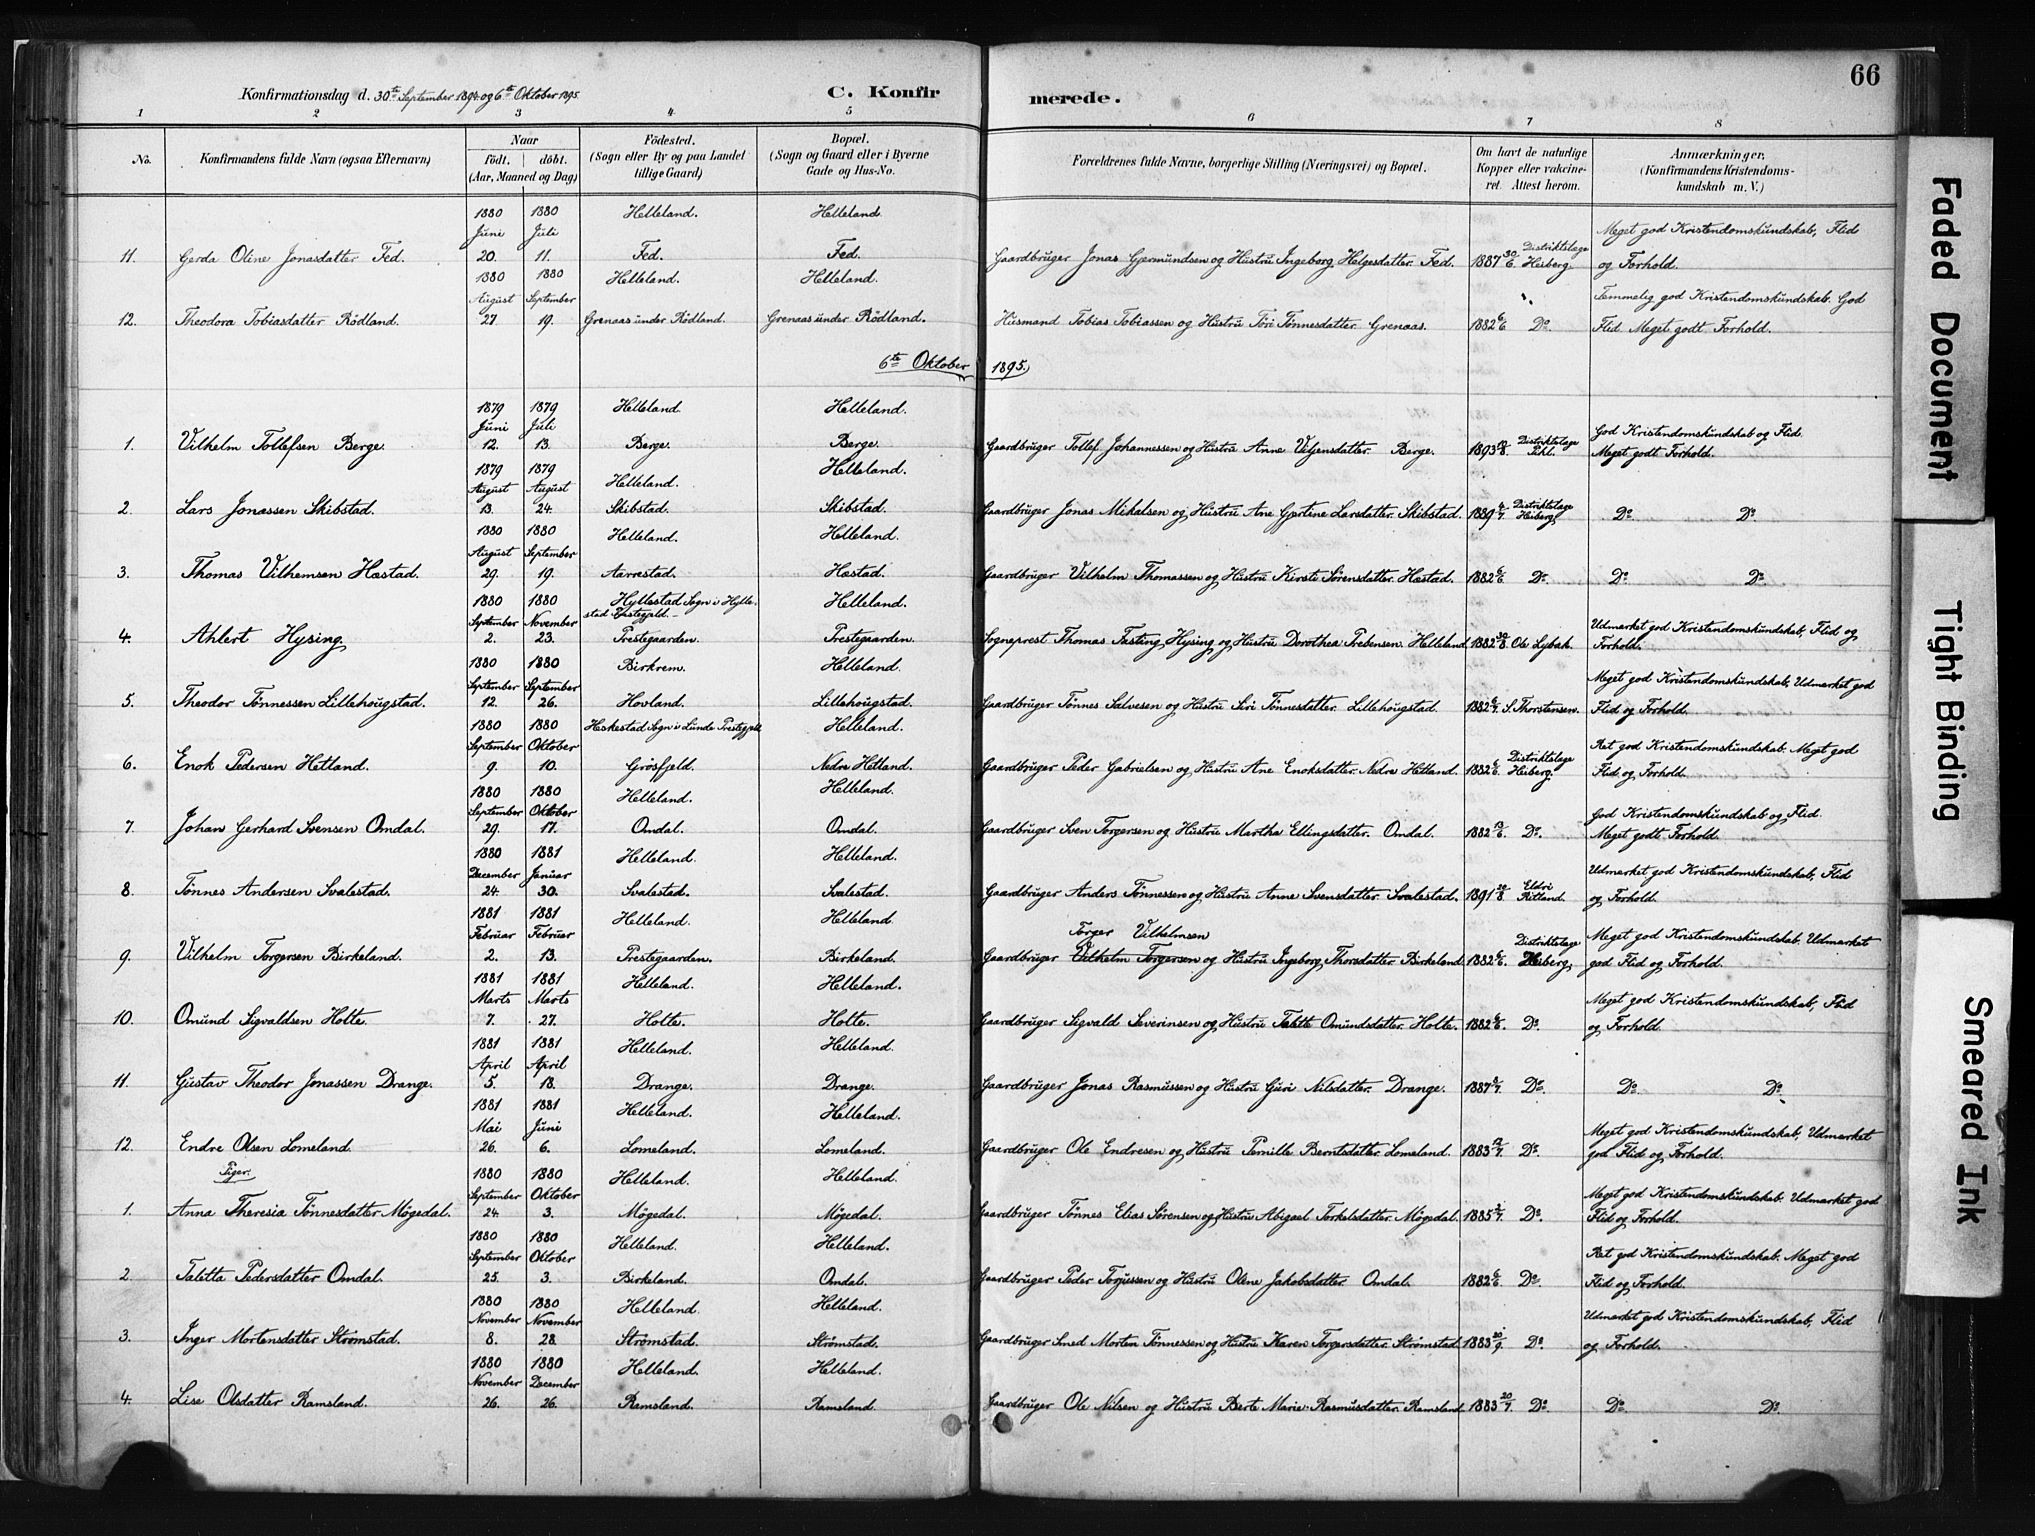 66
Konfirmationsdag d. 30te September 1894 og 6te Oktober 1895.
C. Konfirmerede.
1 2 3 4 5 6 7 8
No.
Konfirmandens fulde Navn (ogsaa Efternavn)
Naar
födt. döbt.
(Aar, Maaned og Dag)
Födested.
(Sogn eller By og paa Landet
tillige Gaard)
Bopæl.
(Sogn og Gaard eller i Byerne
Gade og Hus-No.
Forældrenes fulde Navne, borgerlige Stilling (Næringsvei) og Bopæl.
Om havt de naturlige
Kopper eller vakcine-
ret. Attest herom.
Anmærkninger,
(Konfirmandens Kristendoms-
kundskab m. V.)
1880 1880 Helleland. Helleland
Juni Juli Meget god Kristendomskundskab, Flid
11. Gerda Oline Jonasdatter Fed. 20. 11. Fed. Fed. Gaardbruger Jonas Gjermundsen og Hustru Ingeborg Helgesdatter. Fed. 1887 30/6. Distriktslæge Heiberg. og Forhold.
1880 1880 Helleland. Helleland.
August September Temmelig god Kristendomskundskab. God
12. Theodora Tobiasdatter Rödland. 27 19. Grenaas under Rödland. Grenaas under Rödland. Husmand Tobias Tobiassen og Hustru Töri Tönnesdatter. Grenaas. 1882 6/6 Do. Flid Meget godt Forhold.
6te Oktober 1895.
1879 1879 Helleland. Helleland.
Juni Juli God Kristendomskundskab og Flid.
1. Vilhelm Tollefsen Berge. 12. 13. Berge. Berge. Gaardbruger Tollef Johannessen og Hustru Anne Viljensdatter. Berge. 1893 Distriktslæge Pihl. Meget godt Forhold.
1879 1879 Helleland. Helleland.
August August
2. Lars Jonassen Skibstad. 13. 24. Skibstad. Skibstad. Gaardbruger Jonas Mikalsen og Hustru Ane Gjertine Larsdatter. Skibstad. 1889 4/7. Distriktslæge Heiberg. Do. Do.
1880 1880 Helleland. Helleland.
August September
3. Thomas Vilhemsen Hæstad. 29. 19. Aarrestad. Hæstad. Gaardbruger Vilhelm Thomassen og Hustru Kirste Sørensdatter. Hæstad. 1882 6/6. Do. Do. Do.
1880 1880 Hyllestad Sogn i Hylle- Helleland.
September November stad Prestegjeld. Udmærket god Kristendomskundskab, Flid og
4. Ahlert Hysing 2. 23. Prestegaarden. Prestegaarden. Sogneprest Thomas Fasting Hysing og Hustru Dorothea Prebensen. Helleland. 1882 30/8. Ole Lybæk. Forhold.
1880 1880 Birkrem. Helleland.
September September Meget god Kristendomskundskab, Udmærket god
5. Theodor Tønnessen Lillehougstad. 12. 26. Hovland. Lillehougstad. Gaardbruger Tønnes Salvesen og Hustru Siri Tønnesdatter. Lillehougstad. 1882 6/7. S. Thorstensen. Flid og Forhold.
1880 1880 Heskestad Sogn i Lunde Prestegjeld Helleland.
September Oktober Ret god Kristendomskundskab. Meget god
6. Enok Pedersen Hetland. 9. 10. Grøsfjeld. Nedre Hetland. Gaardbruger Peder Gabrielsen og Hustru Ane Enoksdatter. Nedre Hetland. 1882 6/6. Distriktslæge Heiberg. Flid og Forhold.
1880 1880 Helleland. Helleland.
September Oktober God Kristendomskundskab og Flid.
7. Johan Gerhard Svensen Omdal. 29. 17. Omdal. Omdal. Gaardbruger Sven Torgersen og Hustru Martha Ellingsdatter. Omdal. 1882 13/6. Do. Meget godt Forhold.
1880 1881 Helleland. Helleland.
December Januar Udmærket god Kristendomskundskab, Flid
8. Tønnes Andersen Svalestad. 24. 30. Svalestad. Svalestad. Gaardbruger Anders Tønnessen og Hustru Anne Svensdatter. Svalestad. 1891 Eldri Ritland. og Forhold.
1881 1881 Helleland. Helleland
Februar Februar Torger Vilhelmsen Meget god Kristendomskundskab. Udmærket
9. Vilhelm Torgersen Birkeland. 2. 13. Prestegaarden. Birkeland. Gaardbruger Vilhelm Torgersen og Hustru Ingeborg Thorsdatter. Birkeland. 1882 6/6. Distriktslæge Heiberg. god Flid og Forhold.
1881 1881 Helleland. Helleland.
Marts Marts Meget god Kristendomskundskab, Flid
10. Omund Sigvaldsen Holte. 7. 27. Holte. Holte. Gaardbruger Sigvald Severinsen og Hustru Talette Omundsdatter. Holte. 1882 6/6. Do. og Forhold.
1881 1881 Helleland. Helleland.
April April
11. Gustav Theodor Jonassen Drange. 5. 18. Drange. Drange. Gaardbruger Jonas Rasmussen og Hustru Guri Nilsdatter. Drange. 1887 Do. Do. Do.
1881 1881 Helleland. Helleland.
Mai Juni Meget god Kristendomskundskab, Udmærket
12. Endre Olsen Lomeland. 26. 6. Lomeland. Lomeland. Gaardbruger Ole Endresen og Hustru Pernille Berntsdatter. Lomeland. 1883 Do. god Flid og Forhold.
Piger.
1880 1880 Helleland. Helleland.
September Oktober Meget god Kristendomskundskab. Udmærket god
1. Anna Theresia Tønnesdatter Møgedal. 24. 3. Møgedal. Møgedal. Gaardbruger Tønnes Elias Sørensen og Hustru Abigael Torkelsdatter. Møgedal. 1885 Do. Flid og Forhold.
1880 1880 Helleland. Helleland.
September Oktober Ret god Kristendomskundskab. Meget god
2. Taletta Pedersdatter Omdal. 25. 3. Birkeland. Omdal. Gaardbruger Peder Torjussen og Hustru Olene Jakobsdatter. Omdal. 1882 6/6. Do. Flid og Forhold.
1880 1880 Helleland. Helleland.
November November Udmærket god Kristendomskundskab, Flid
3. Inger Mortensdatter Strømstad. 8. 28. Strømstad. Strømstad. Gaardbruger Smed Morten Tønnessen og Hustru Karen Torgersdatter. Strømstad. 1883 20/9. Do. og Forhold.
1880 1880 Helleland. Helleland.
November December
4. Lise Olsdatter Ramsland. 26. 26. Ramsland. Ramsland. Gaardbruger Ole Nilsen og Hustru Berte Marie Rasmusdatter. Ramsland. 1883 20/7. Do. Do. Do.
Faded Document
Tight Binding
Smeared Ink